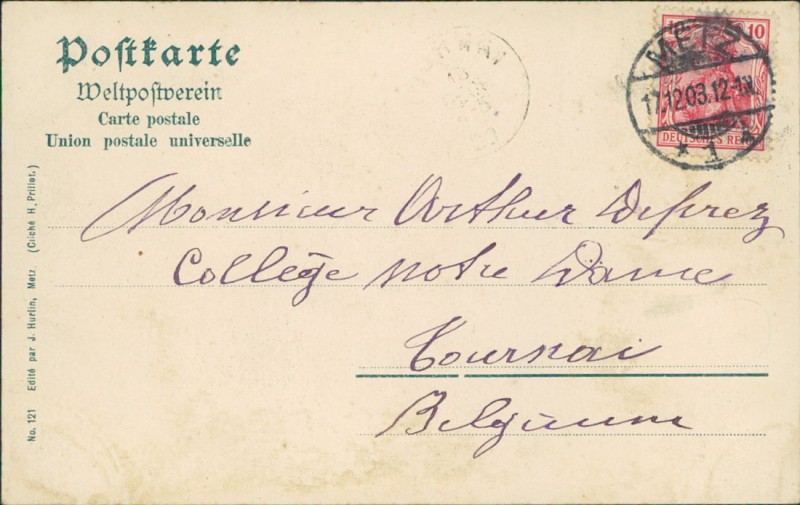 Postkarte
Weltpostverein
Carte postale
Union postale universelle
10
METZ
17.12.03.12-1N.
* 1 *
DEUTSCHES REICH
Monsieur Arthur Deprez
Collège Notre Dame
Tournai
Belgium
No. 121 Edité par J. Hurlin, Metz (Cliché H. Prillot.)